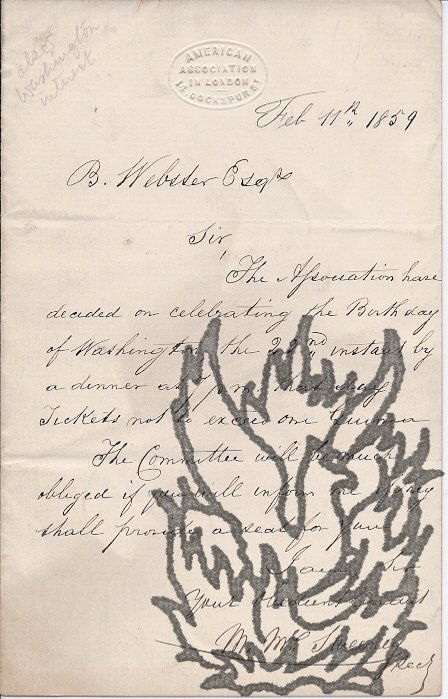 also
Washington
interest
AMERICAN
ASSOCIATION
IN LONDON
14, COCKSPUR ST
Feb 11th 1859
B. Webster Esqre
Sir,
The Association have
decided on celebrating the Birthday
of Washington, the 22nd instant by
a dinner at 7 pm that day
Tickets not to exceed one Guinea
The Committee will be much
obliged if you will inform me if they
shall provide a seat for you
I am, Sir
Your obedient Servant
Sweeney
Secy